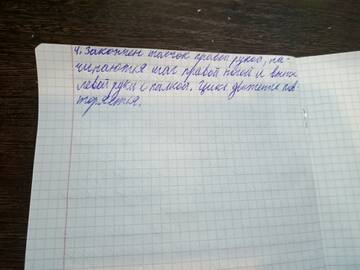 4. Закончен толчок правой рукой, на-
чинаются шаг правой ногой и вынос
левой руки с палкой. Цикл движения пов-
торяется.